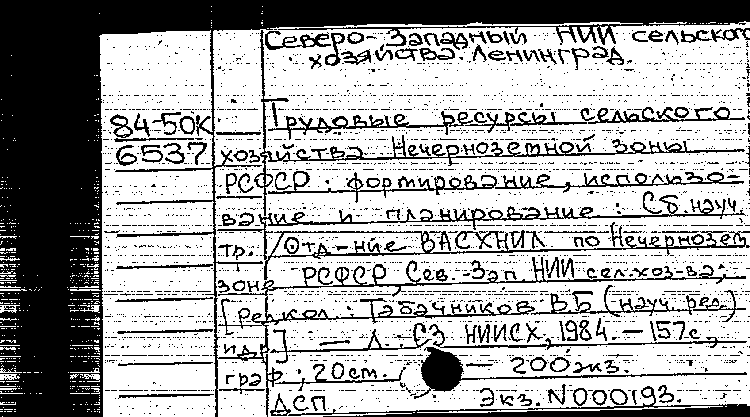 Северо-Западный НИИ сельского
хозяйства. Ленинград.
84-50К Трудовые ресурсы сельского
6537 хозяйства Нечерноземной зоны
РСФСР : формирование, использо-
вание и планирование : Сб. науч.
тр. / Отд-ние ВАСХНИЛ по Нечернозем
зоне РСФСР, Сев.-Зап. НИИ сел.хоз-ва;
[Редкол.: Табачников В.Б (науч. ред.)
и др.] — Л. : СЗ НИИСХ, 1984. — 157с,
граф ; 20см. — 200экз.
ДСП. Экз. N000193.